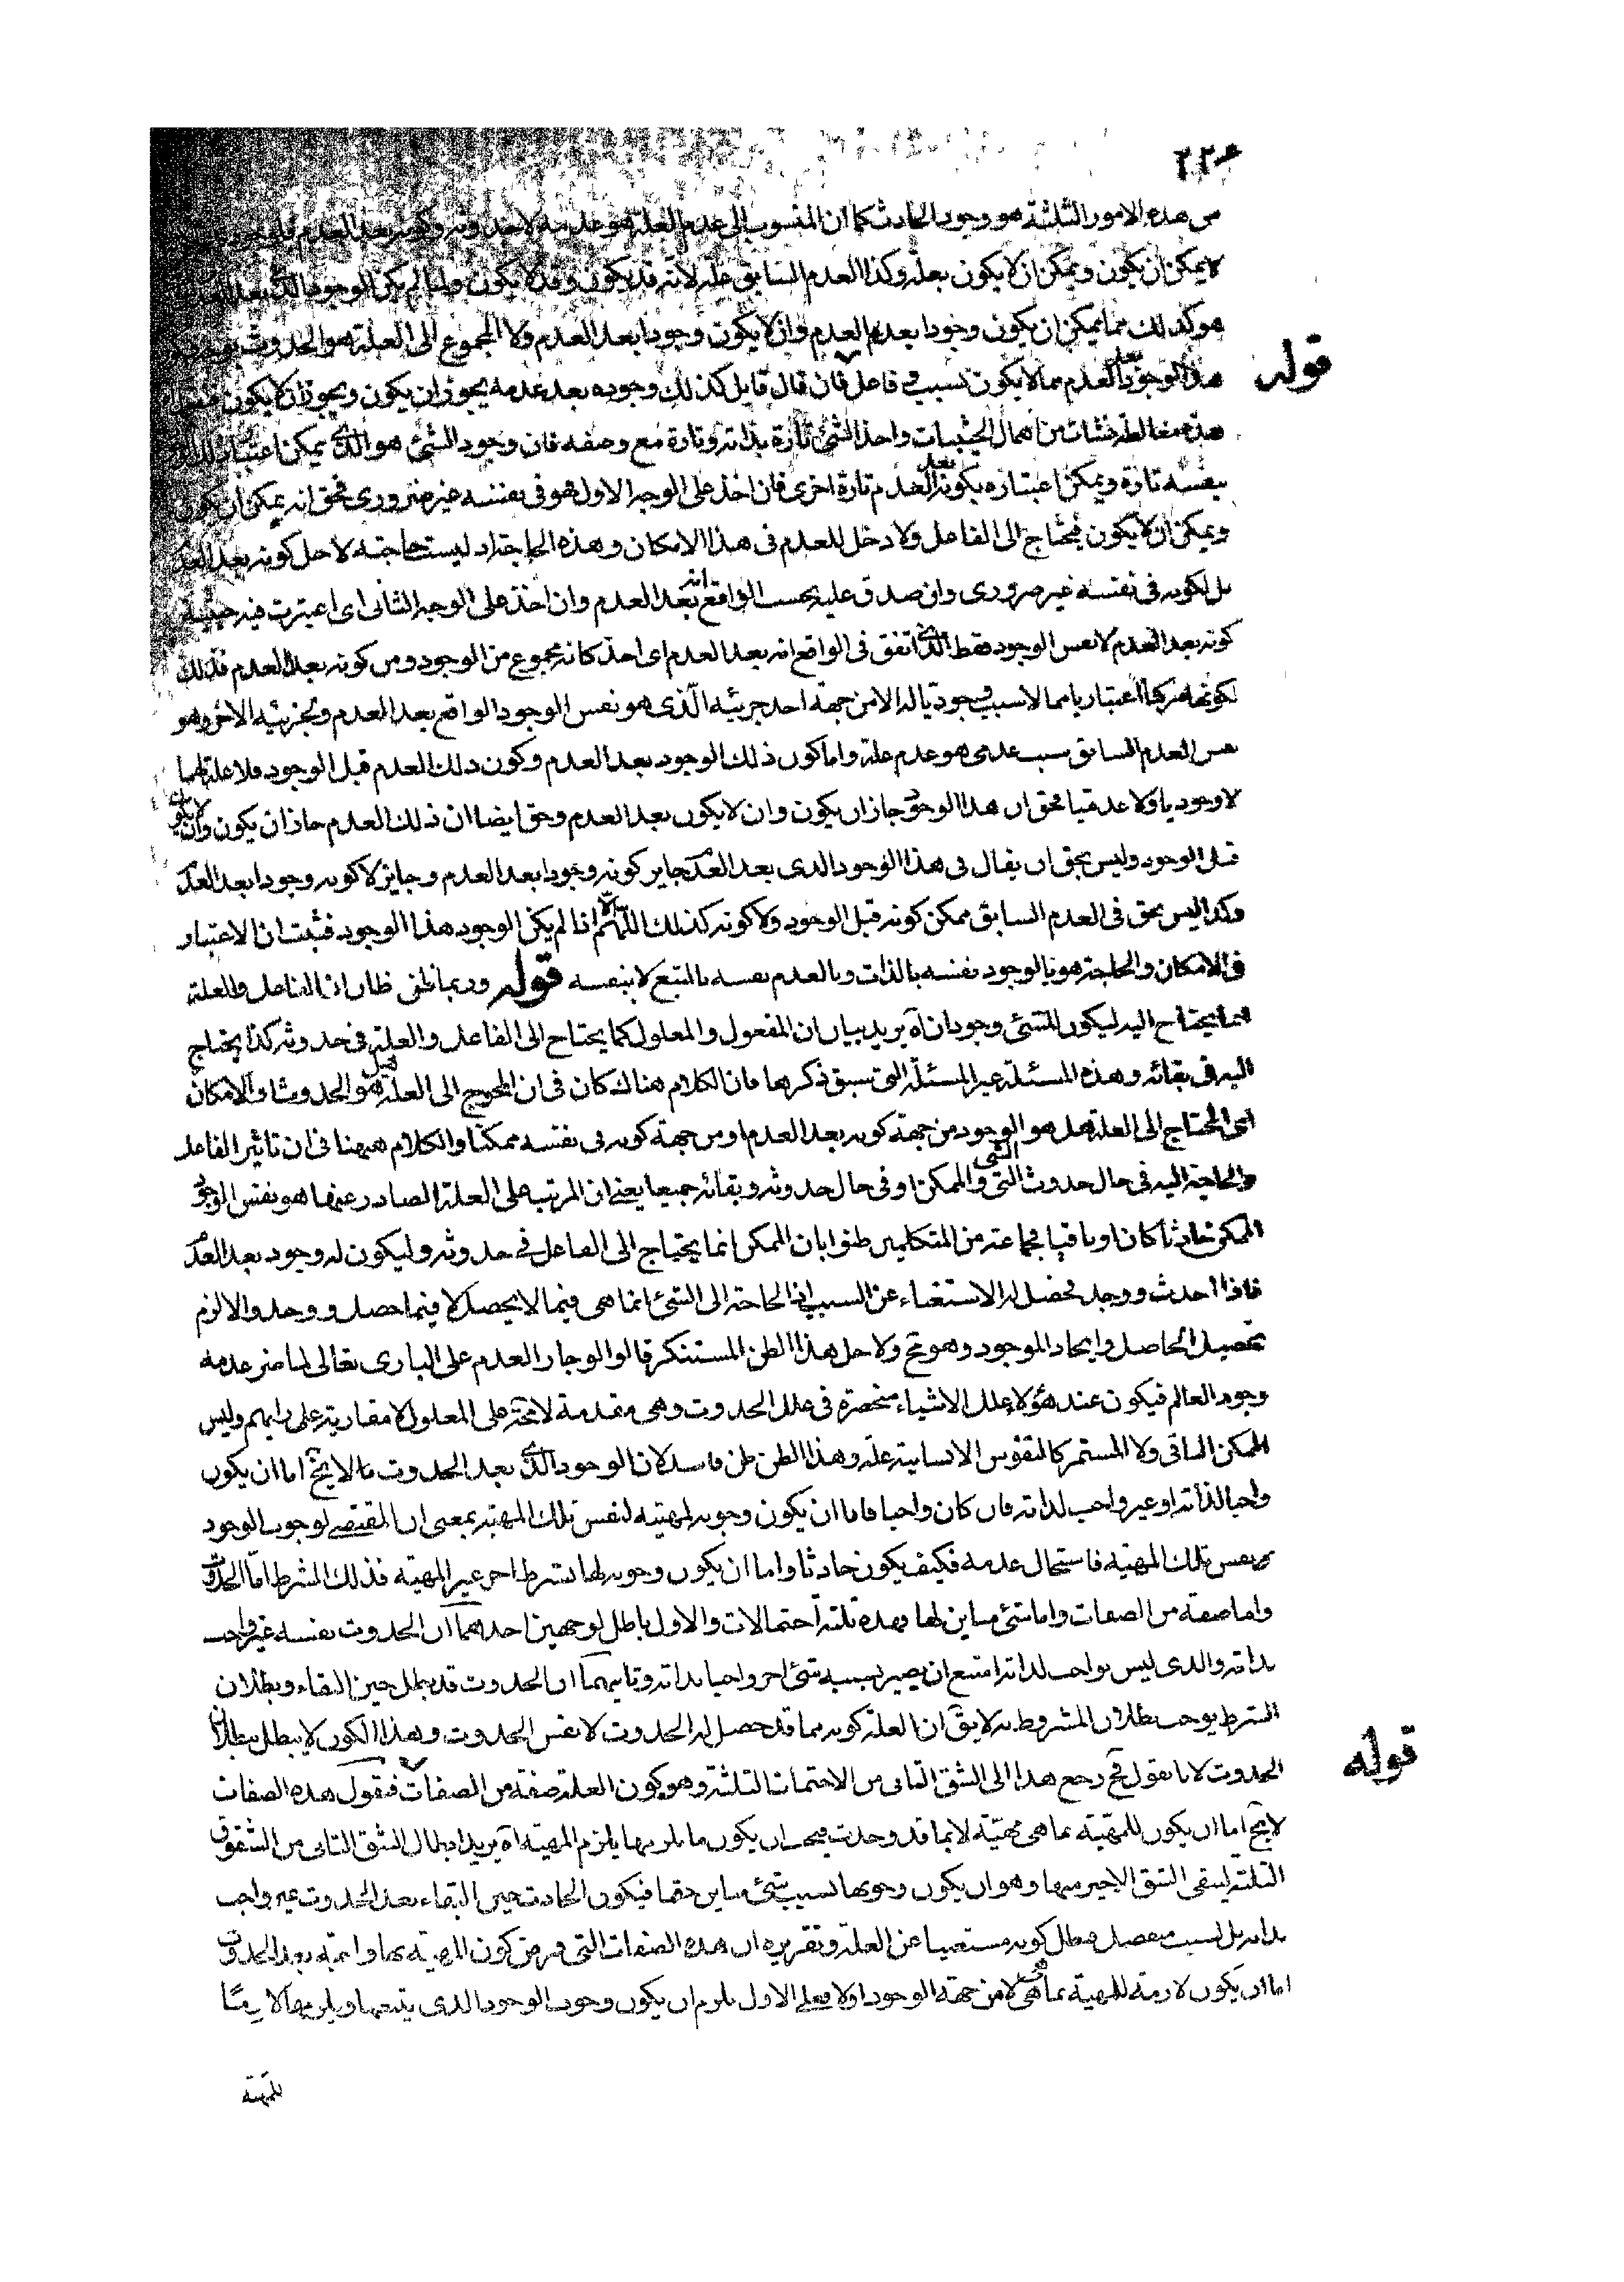 ٢٢٠
من هذه الامور الثلثة هو وجود الحادث كما ان المنسوب الى عدم العلة هو عدمه لا بعد
لا يمكن ان يكون ويمكن ان لا يكون بعلة وكذا العدم السابق علة لانه قد يكون وقد لا يكون ولما لم يكن الوجود الذى بعد العدم
هو كذلك مما يمكن ان يكون وجودا بعد العدم وان لا يكون وجودا بعد العدم ولا المجموع الى العلة هو الحدوث
قوله
هذا الوجود بعد العدم مما لا يكون بسبب فاعل فان قال قايل كذلك وجوده بعد عدمه يجوز ان يكون ويجوز ان لا يكون
هذه مغالطة نشات من اهمال الحيثيات واخذ الشئ تارة بذاته وتارة مع وصفه فان وجود الشئ هو الذى يمكن اعتباره
بنفسه تارة ويمكن اعتباره بكونه بعد العدم تارة اخرى فان اخذ على الوجه الاول هو فى نفسه غير ضرورى فحق انه يمكن ان يكون
ويمكن ان لا يكون فيحتاج الى الفاعل ولا دخل للعدم فى هذا الامكان وهذه الحاجة اذ ليست حاجته لاجل كونه بعد العدم
بل لكونه فى نفسه غير ضرورى وان صدق عليه بحسب الواقع انه بعد العدم وان اخذ على الوجه الثانى اى اعتبرت فيه حيثية
كونه بعد العدم لا نفس الوجود فقط الذى اتفق فى الواقع انه بعد العدم اى اخذ كانه مجموع من الوجود ومن كونه بعد العدم فذلك
لكونها مركبا اعتباريا مما لا سبب وجوديا له الا من جهة احد جزئيه الذى هو نفس الوجود الواقع بعد العدم ولجزئيه الاخر وهو
نفس العدم السابق سبب عدمى هو عدم علة واما كون ذلك الوجود بعد العدم وكون ذلك العدم قبل الوجود فلا علة لهما
لا وجوديا ولا عدميا فحق ان هذا الوجود جاز ان يكون وان لا يكون بعد العدم وحق ايضا ان ذلك العدم جاز ان يكون وان لا يكون
قبل الوجود وليس بحق ان يقال فى هذا الوجود الذى بعد العدم جايز كونه وجودا بعد العدم وجايز لا كونه وجودا بعد العدم
وكذا ليس بحق فى العدم السابق ممكن كونه قبل الوجود ولا كونه كذلك اللهم الا اذا لم يكن الوجود هذا الوجود فثبت ان الاعتبار
فى الامكان والحاجة هو بالوجود بنفسه بالذات وبالعدم نفسه بالتبع لا بنفسه قوله وربما ظن ظان ان الفاعل والعلة
انما يحتاج اليه ليكون للشئ وجود ان آه يريد بيان ان المفعول والمعلول كما يحتاج الى الفاعل والعلة فى حدوثه كذا يحتاج
اليه فى بقائه وهذه المسئلة غير المسئلة التى سبق ذكرها فان الكلام هناك كان فى ان المحوج الى العلة هل هو الحدوث او الامكان
اى المحتاج الى العلة هل هو الوجود من جهة كونه بعد العدم او من جهة كونه فى نفسه ممكنا والكلام ههنا فى ان تاثير الفاعل
والحاجة اليه فى حال حدوث الشئ الممكن او فى حال حدوثه وبقائه جميعا يعنى ان المرتب على العلة الصادر عنها هو نفس الوجود
الممكن حادثا كان او باقيا فجماعة من المتكلمين ظنوا بان الممكن انما يحتاج الى الفاعل فى حدوثه وليكون له وجود بعد العدم
فاذا احدث ووجد فحصل له الاستغناء عن السبب اذ الحاجة الى الشئ انما هى فيما لا يحصل لا فيما حصل ووجد والا لزم
تحصيل الحاصل وايجاد الموجود وهو مح ولاجل هذا الظن المستنكر قالوا لو جاز العدم على البارى تعالى لما ضر عدمه
وجود العالم فيكون عند هؤلاء علل الاشياء منحصرة فى علل الحدوث وهى متقدمة لا محة على المعلول لا مقارنة على رايهم وليس
للممكن الباقى ولا المستمر كالنفوس الانسانية علة وهذا الظن ظن فاسد لان الوجود الذى بعد الحدوث مما لا يخ اما ان يكون
واجبا لذاته او غير واجب لذاته فان كان واجبا فاما ان يكون وجوبه لمهيته لنفس تلك المهية بمعنى ان المقتضى لوجوب الوجود
هو نفس تلك المهية فاستحال عدمه فكيف يكون حادثا واما ان يكون وجوبه لها بشرط اخر غير المهية فذلك الشرط اما الحدوث
واما صفة من الصفات واما شئ مباين لها فهذه ثلثة احتمالات والاول باطل لوجهين احدهما ان الحدوث بنفسه غير واجب
بذاته والذى ليس بواجب لذاته امتنع ان يصير بسببه شئ اخر واجبا بذاته وثانيهما ان الحدوث قد يبطل حين البقاء وبطلان
الشرط يوجب بطلان المشروط به لا يق ان العلة كونه مما قد حصل له الحدوث لا نفس الحدوث وهذا الكون لا يبطل ببطلان
قوله
الحدوث لانا نقول فح رجع هذا الى الشق الثانى من الاحتمات الثلثة وهو كون العلة صفة من الصفات فنقول هذه الصفات
لا يخ اما ان يكون للمهية بما هى مهية لا بما قد وجدت فيجب ان يكون ما يلزمها يلزم المهية آه يريد ابطال الشق الثانى من الشقوق
الثلثة ليبقى الشق الاخير منها وهو ان يكون وجوبها بسبب شئ مباين حقا فيكون الحادث حين البقاء بعد الحدوث غير واجب
بذاته بل بسبب منفصل فبطل كونه مستغنيا عن العلة وتقريره ان هذه الصفات التى فرض كون المهية بها واجبة بعد الحدوث
اما ان يكون لازمة للمهية بما هى هى لا من جهة الوجود او لا فعلى الاول يلزم ان يكون وجوب الوجود الذى يتبعها ويلزمها لازما
للمهية